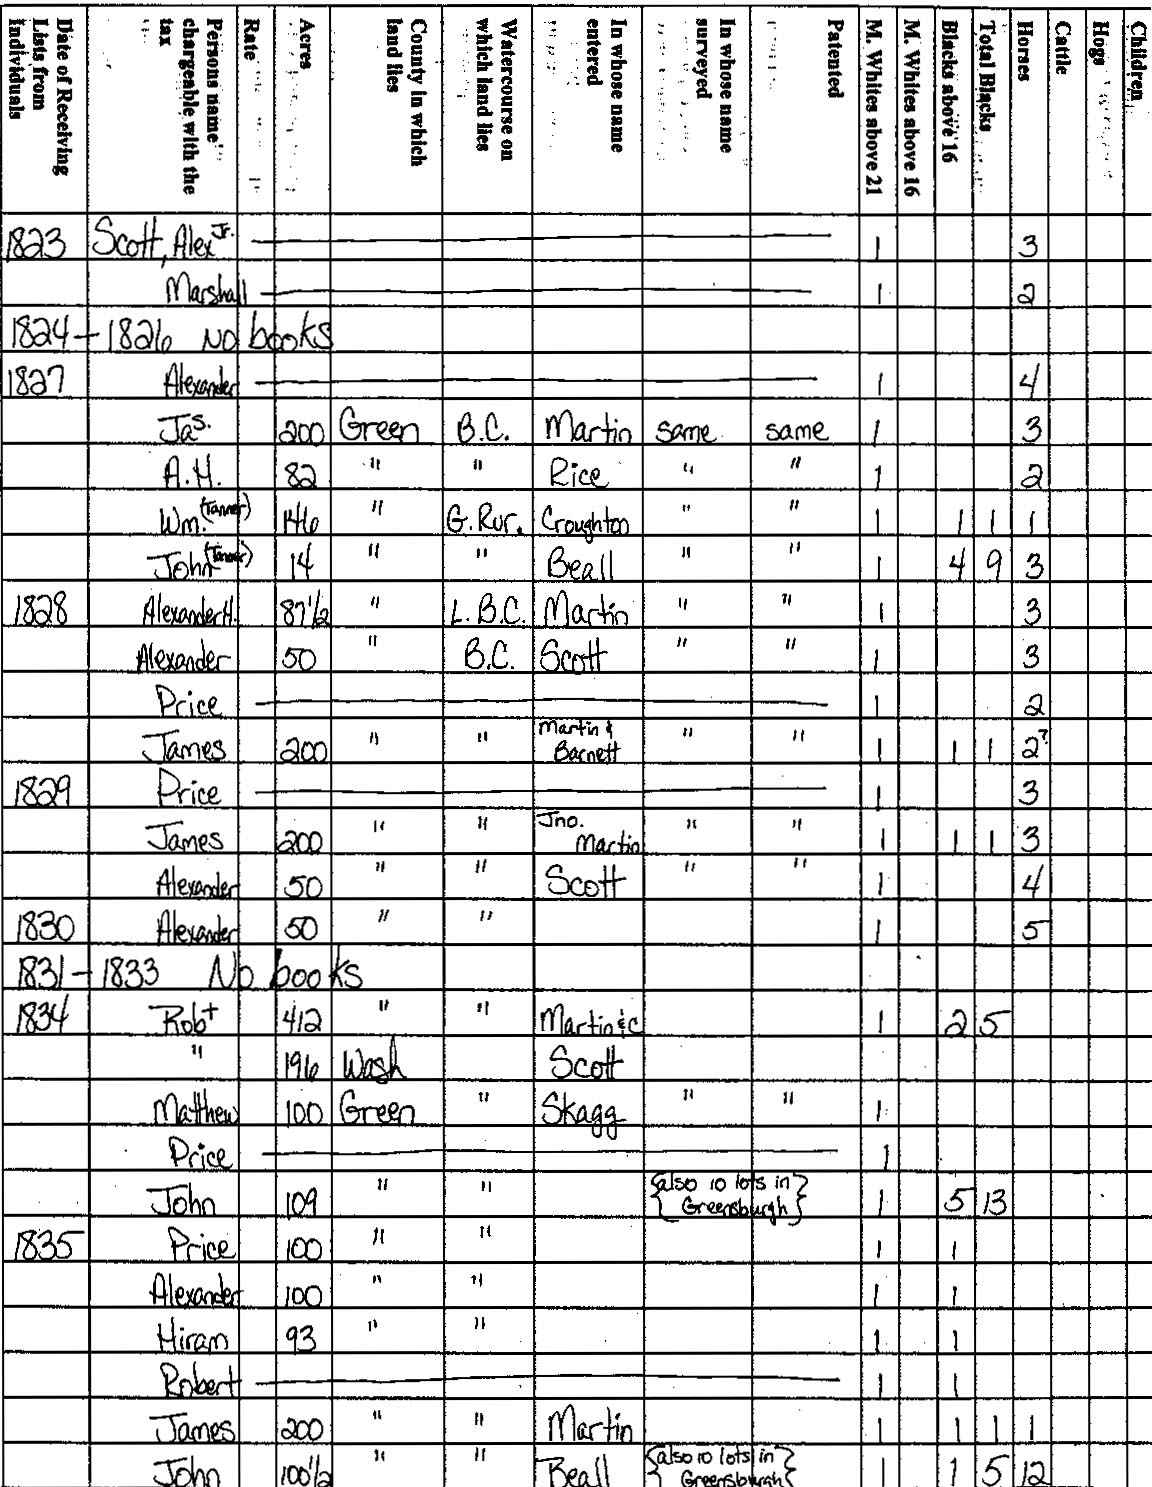 Date of Receiving Lists from Individuals | Persons name chargeable with the tax | Rate | Acres | County in which land lies | Watercourse on which land lies | In whose name entered | In whose name surveyed | Patented | M. Whites above 21 | M. Whites above 16 | Blacks above 16 | Total Blacks | Horses | Cattle | Hogs | Children
1823 Scott, Alex Jr. 1 3
Marshall 1 2
1824-1826 No books
1827 Alexander 1 4
Jas. 200 Green B.C. Martin same same 1 3
A.H. 82 " " Rice " " 1 2
Wm. (Tanner) 146 " G. Rvr. Croughton " " 1 1 1 1
John (Tanner) 14 " " Beall " " 1 4 9 3
1828 Alexander H. 87 1/2 " L.B.C. Martin " " 1 3
Alexander 50 " B.C. Scott " " 1 3
Price 1 2
James 200 " " Martin & Barnett " " 1 1 1 2?
1829 Price 1 3
James 200 " " Jno. Martin " " 1 1 1 3
Alexander 50 " " Scott " " 1 4
1830 Alexander 50 " " 1 5
1831-1833 No books
1834 Robt 412 " " Martin &c 1 2 5
" 196 Wash Scott
Matthew 100 Green " Skagg " " 1
Price 1
John 109 " " {also 10 lots in Greensburgh} 1 5 13
1835 Price 100 " " 1 1
Alexander 100 " " 1 1
Hiram 93 " " 1 1
Robert 1 1
James 200 " " Martin 1 1 1 1
John 100 1/2 " " Beall {also 10 lots in Greensburgh{ 1 1 5 12